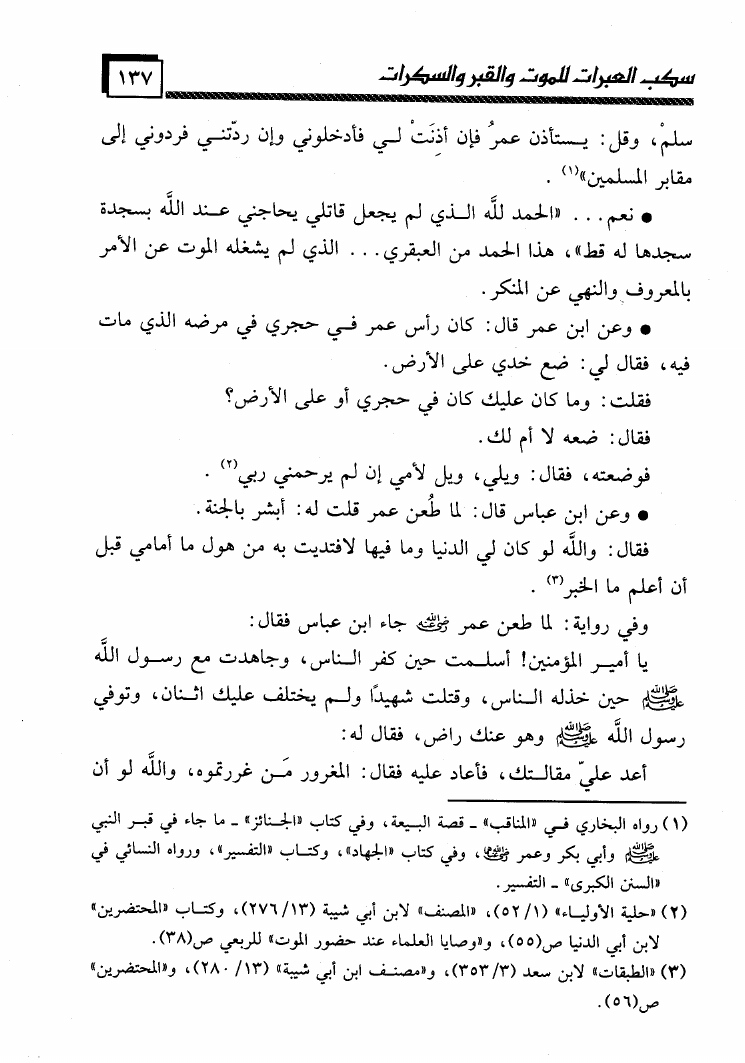 سكب العبرات للموت والقبر والسكرات
١٣٧
سلمْ، وقل: يستأذن عمرُ فإن أذِنَتْ لي فأدخلوني وإن ردّتني فردوني إلى
مقابر المسلمين»(١) .
● نعم... «الحمد للَّه الذي لم يجعل قاتلي يحاجني عند اللَّه بسجدة
سجدها له قط»، هذا الحمد من العبقري... الذي لم يشغله الموت عن الأمر
بالمعروف والنهي عن المنكر.
● وعن ابن عمر قال: كان رأس عمر في حجري في مرضه الذي مات
فيه، فقال لي: ضع خدي على الأرض.
فقلت: وما كان عليك كان في حجري أو على الأرض؟
فقال: ضعه لا أم لك.
فوضعته، فقال: ويلي، ويل لأمي إن لم يرحمني ربي(٢) .
● وعن ابن عباس قال: لما طُعن عمر قلت له: أبشر بالجنة.
فقال: واللَّه لو كان لي الدنيا وما فيها لافتديت به من هول ما أمامي قبل
أن أعلم ما الخبر(٣) .
وفي رواية: لما طعن عمر رضي الله عنه جاء ابن عباس فقال:
يا أمير المؤمنين! أسلمت حين كفر الناس، وجاهدت مع رسول اللَّه
ﷺ حين خذله الناس، وقتلت شهيدًا ولم يختلف عليك اثنان، وتوفي
رسول اللَّه ﷺ وهو عنك راض، فقال له:
أعد عليّ مقالتك، فأعاد عليه فقال: المغرور مَن غررتموه، واللَّه لو أن
(١) رواه البخاري في «المناقب» ـ قصة البيعة، وفي كتاب «الجنائز» ـ ما جاء في قبر النبي
ﷺ وأبي بكر وعمر رضي الله عنهما، وفي كتاب «الجهاد»، وكتاب «التفسير»، ورواه النسائي في
«السنن الكبرى» ـ التفسير.
(٢) «حلية الأولياء» (١/ ٥٢)، «المصنف» لابن أبي شيبة (١٣/ ٢٧٦)، وكتاب «المحتضرين»
لابن أبي الدنيا ص(٥٥)، و«وصايا العلماء عند حضور الموت» للربعي ص(٣٨).
(٣) «الطبقات» لابن سعد (٣/ ٣٥٣)، و«مصنف ابن أبي شيبة» (١٣/ ٢٨٠)، و«المحتضرين»
ص(٥٦).